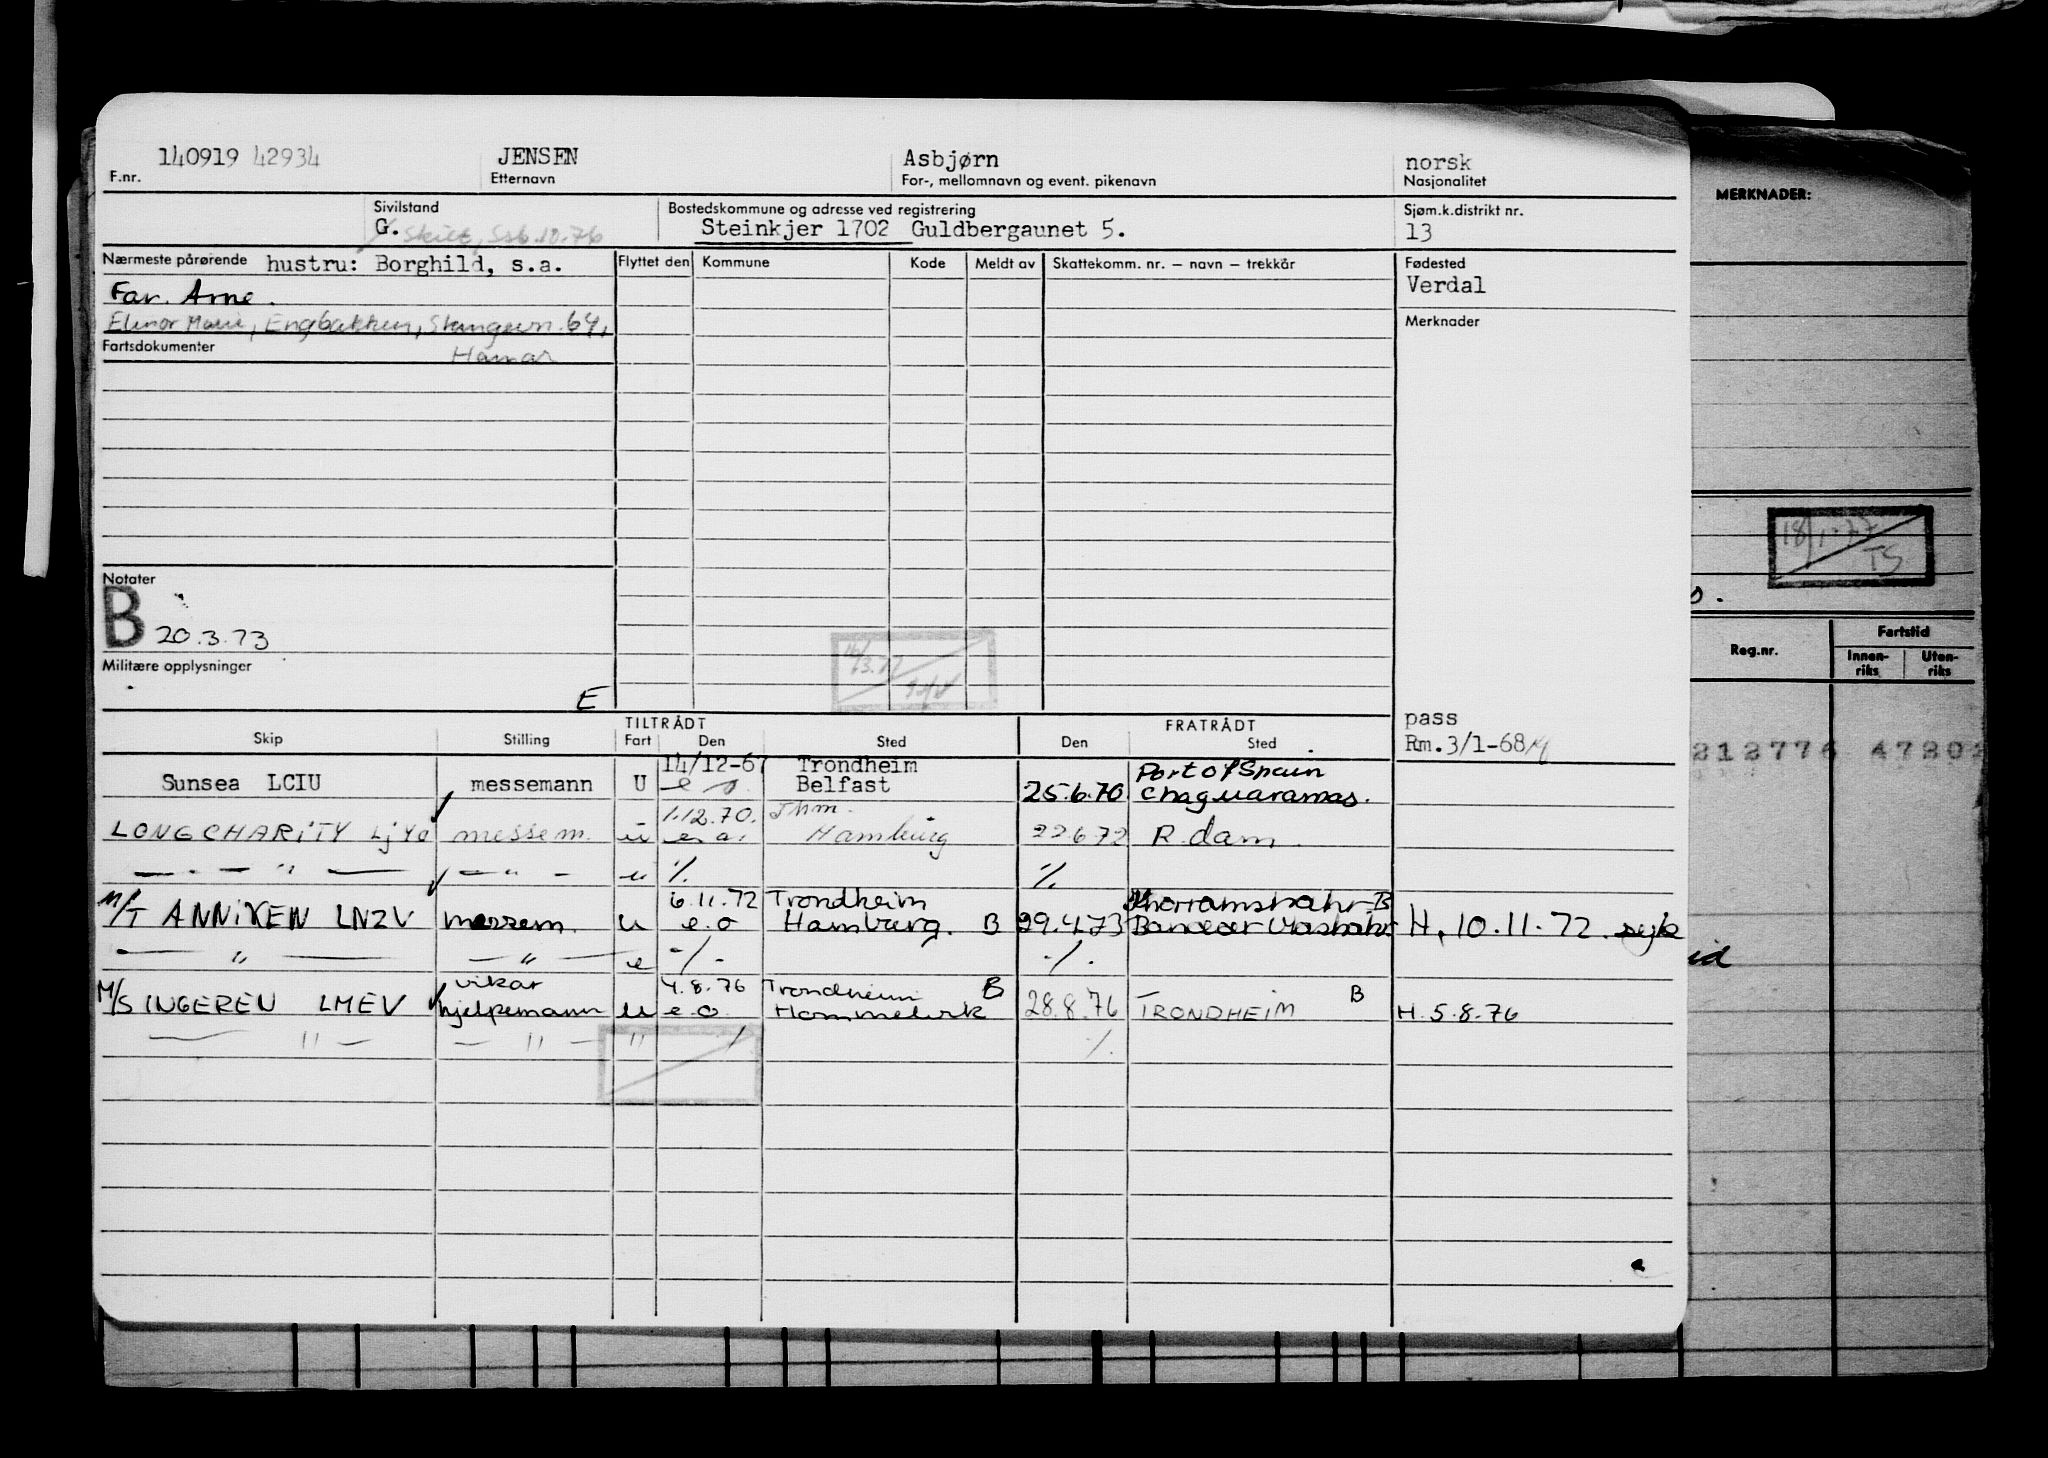 140919 42934 JENSEN Asbjørn norsk
F.nr. Etternavn For-, mellomnavn og event. pikenavn Nasjonalitet
MERKNADER:
Sivilstand Bostedskommune og adresse ved registrering Sjøm.k.distrikt nr.
G. Skilt, Ssb.10.76 Steinkjer 1702 Guldbergaunet 5. 13
Nærmeste pårørende hustru: Borghild, s.a. Flyttet den Kommune Kode Meldt av Skattekomm. nr. – navn – trekkår Fødested
Verdal
Far. Arne.
Elinor Marie, Engbakken, Stangevn. 64, Merknader
Fartsdokumenter Hamar
18/1-77
TS
Notater
B 20.3.73
Militære opplysninger
E
Reg.nr. Fartstid
Innen-riks Uten-riks
TILTRÅDT FRATRÅDT pass
Skip Stilling Fart Den Sted Den Sted Rm.3/1-68
212776 4780
14/12-67 Trondheim Port of Spain
Sunsea LCIU messemann U e o. Belfast 25.6.70 Chaguaramas.
1.12.70. Thm.
LONGCHARITY LjYo messem. u e.o. Hamburg 22.6.72 R.dam
— " — — " — u ·/. ·/.
6.11.72 Trondheim Khorramshahr B
M/T ANNIKEN LNZV messem. u e.o Hamburg. B 29.4.73 Bandar Mashahr H. 10.11.72
— " — — " — u ·/. ·/.
vikar 4.8.76 Trondheim B B
M/S INGEREN LMEV hjelpemann u e.o. Hommelvik 28.8.76 TRONDHEIM H. 5.8.76
— " — — " — " ·/.